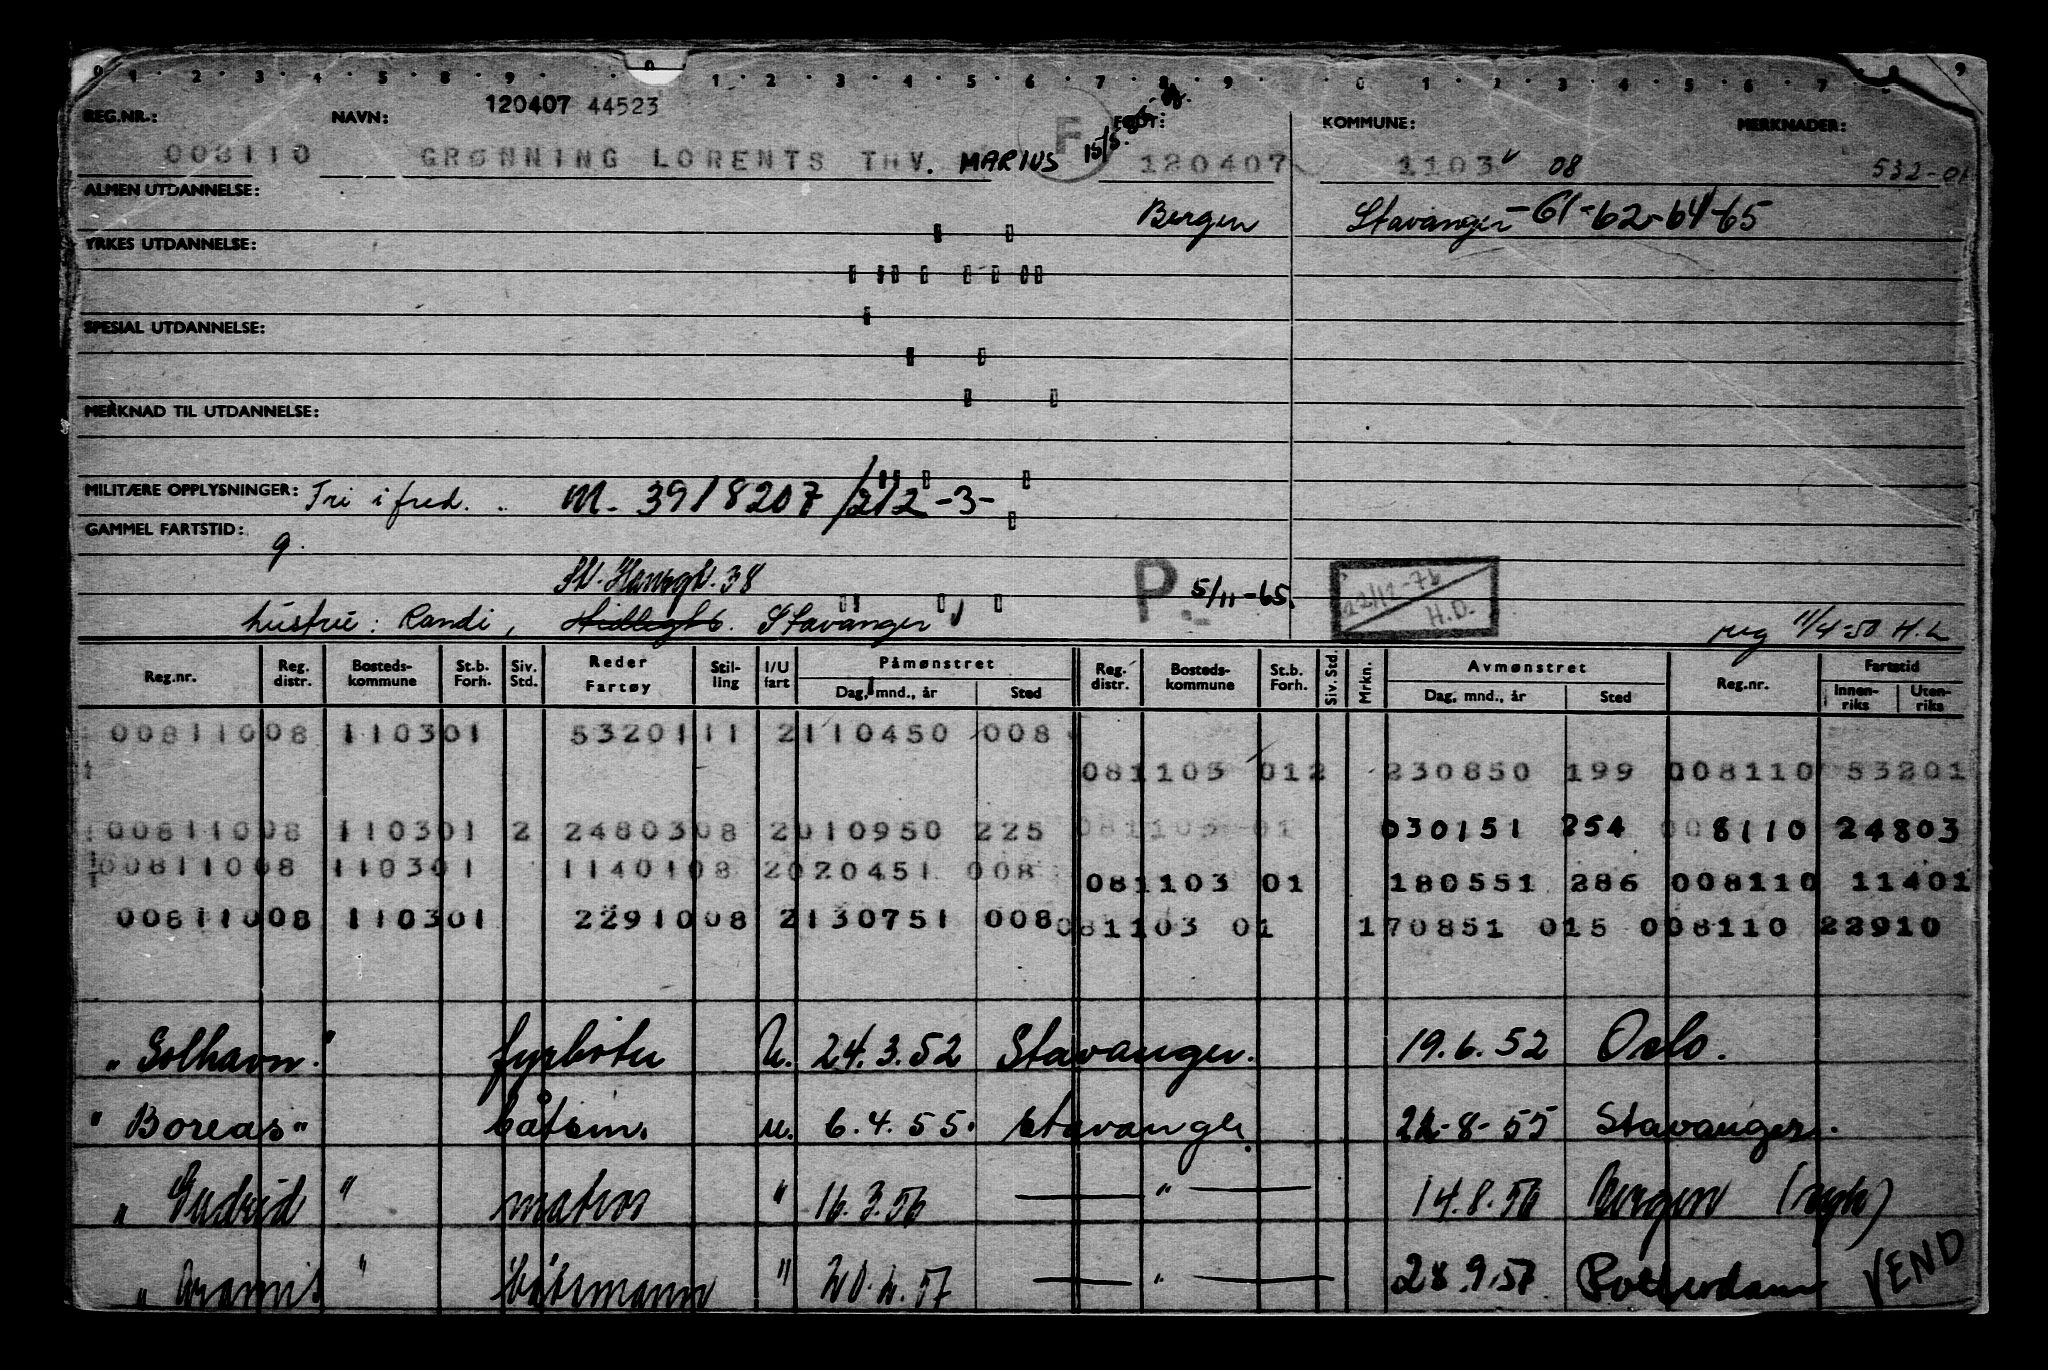 0 1 2 3 4 5 8 9 0 1 2 3 4 5 6 7 8 9 0 1 2 3 4 5 6 7 8 9
120407 44523
REG.NR.: NAVN: FØDT: KOMMUNE: MERKNADER:
008110 GRØNNING LORENTS THV. MARIUS F 15/5. 120407 1103 08 532-01
ALMEN UTDANNELSE: Bergen Stavanger -61-62-64-65
YRKES UTDANNELSE:
SPESIAL UTDANNELSE:
MERKNAD TIL UTDANNELSE:
MILITÆRE OPPLYSNINGER: Tri i fred. M. 3918207/212-3-
GAMMEL FARTSTID: 9.
St. Hansgt. 38 P. 5/11-65. 22/12-76 H.D.
hustru: Randi, Stavanger reg 11/4-50 H.L
Reg.nr. Reg. distr. Bosteds-kommune St.b. Forh. Siv. Std. Reder Fartøy Stil-ling I/U fart Påmønstret Dag, mnd., år Sted Reg. distr. Bosteds-kommune St.b. Forh. Siv. Std. Mrkn. Avmønstret Dag, mnd., år Sted Reg.nr. Fartstid Innen-riks Uten-riks
00811008 110301 5320111 2110450 008
081103 012 230850 199 008110 53201
00811008 110301 2 2480308 2010950 225 081103 01 030151 254 008110 24803
00811008 110301 1140108 2020451 008 081103 01 180551 286 008110 11401
00811008 110301 2291008 2130751 008 081103 01 170851 015 008110 22910
"Solhavn." fyrbøter U. 24.3.52 Stavanger. 19.6.52 Oslo.
"Boreas" båtsm. u. 6.4.55. Stavanger. 22-8-55 Stavanger.
"Gudrid" matros " 16.3.56 — " — 14.8.56 Bergen (syk)
"Aramis" båtsmann " 20.4.57 — " — 28.9.57 Rotterdam VEND